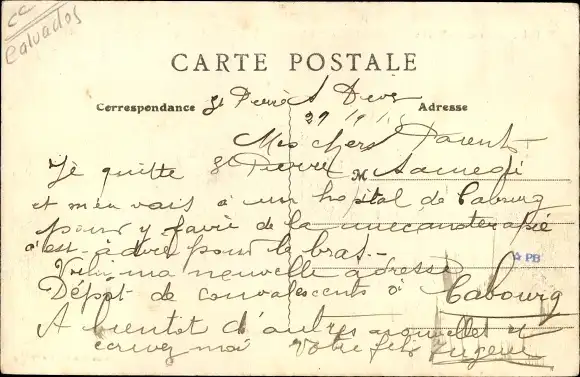 cc
Calvados
CARTE POSTALE
Correspondance St Pierre s Dives Adresse
29
Mes chers Parents
Je quitte St Pierre M Samedi
et m'en vais a un hopital de Cabourg
pour y faire de la mecanoterapie
c'est à dire pour le bras.
PB
Voici ma nouvelle adresse
Dépot de convalescents à Cabourg
A bientot d'autres nouvelles et
ecrivez moi Votre fils Eugene